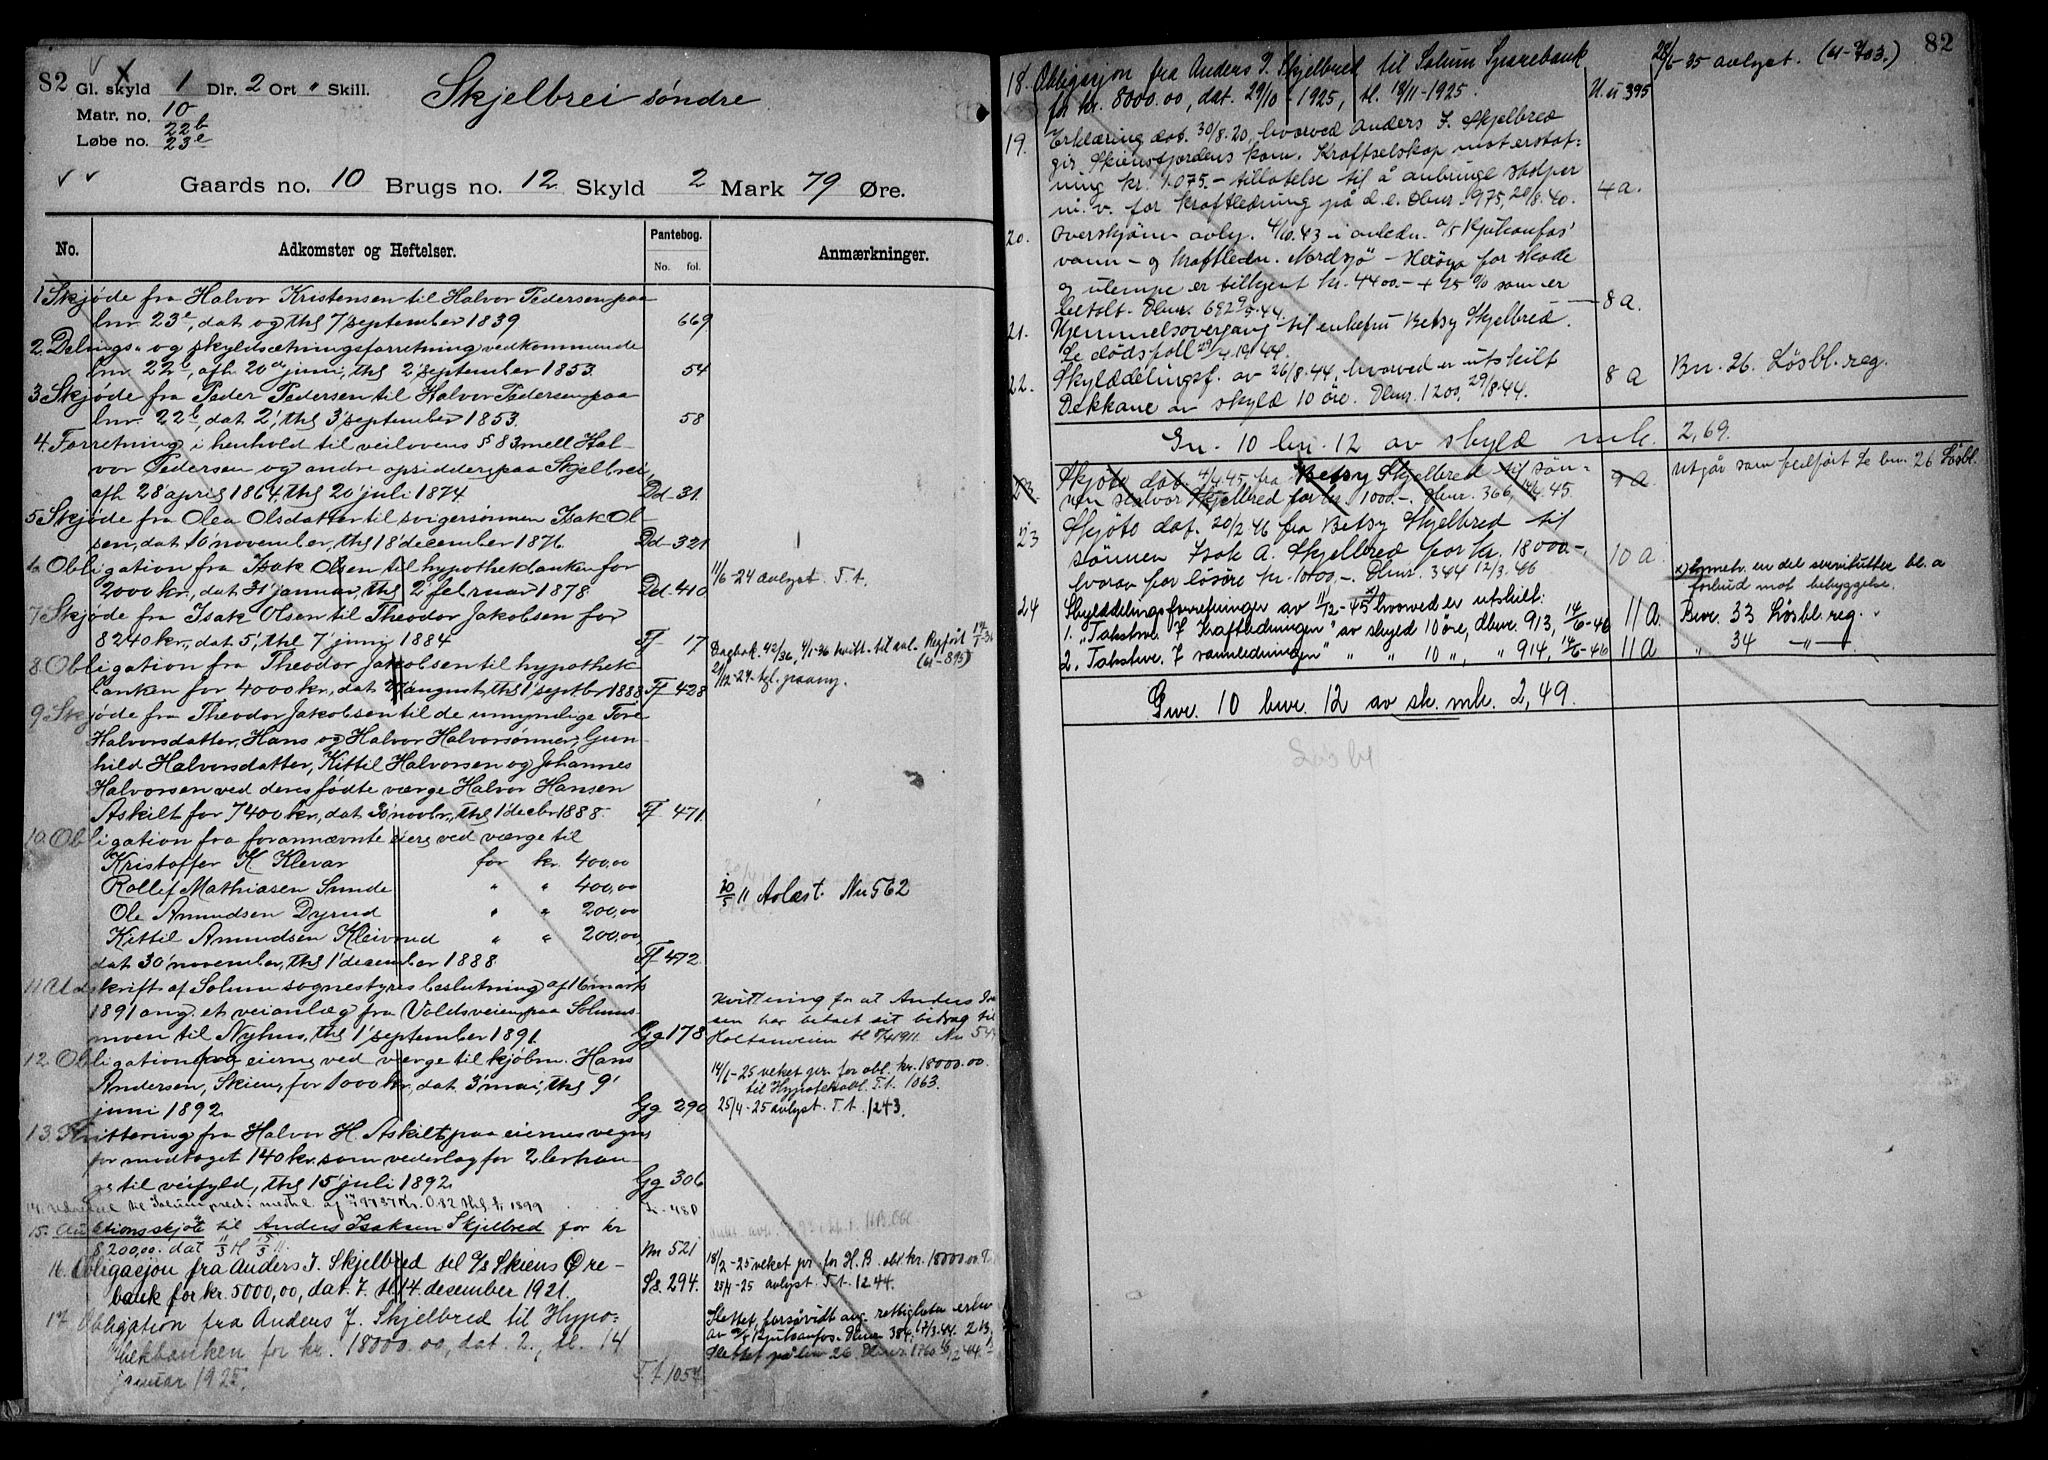 82
Gl. skyld 1 Dlr. 2 Ort " Skill.
Skjelbrei søndre
Matr. no. 10
22b
Løbe no. 23e
Gaards no. 10 Brugs no. 12 Skyld 2 Mark 79 Øre.
No. Adkomster og Heftelser. Pantebog. No. fol. Anmærkninger.
1 Skjøde fra Halvor Kristensen til Halvor Pedersen paa
lnr. 23e, dat og thl 7' september 1839 669
2. Delings- og skyldsætningsforretning vedkommende
lnr. 22b, afh. 20de juni, thl 2' september 1853. 54
3 Skjøde fra Peder Pedersen til Halvor Pedersen paa
lnr. 22b, dat 2', thl 3' september 1853. 58
4. Forretning i henhold til veilovens § 83 mell Hal-
vor Pedersen og andre opsiddere paa Skjelbrei
afh 28' april 1864, thl 20' juli 1874. Dd 31.
5 Skjøde fra Olea Olsdatter til svigersønnen Isak Ol-
sen, dat 10' november, thl 18' december 1876. Dd 321
6 Obligation fra Isak Olsen til hypothekbanken for
2000 kr, dat 31' januar, thl 2' februar 1878 Dd. 410
11/6-24 avlyst. T. t.
7 Skjøde fra Isak Olsen til Theodor Jakobsen for
8240 kr., dat 5', thl 7' juni 1884 Ff 17
8. Obligation fra Theodor Jakobsen til hypothek-
banken for 4000 kr, dat 27' august, thl 1' septbr 1888 Ff 428
Dagbok 42/36, 4/1-36 kvitt. til avl. Refført
(61-895)
21/12-24
9. Skjøde fra Theodor Jakobsen til de umyndige Tore
Halvorsdatter, Hans og Halvor Halvorsønner, Gun-
hild Halvorsdatter, Kittil Halvorsen og Johannes
Halvorsen ved deres fødte værge Halvor Hansen
Askilt for 7400 kr, dat 30' novbr., thl 1' decbr 1888. Ff 471.
10. Obligation fra forannævnte eiere ved værge til
Kristoffer K Klevar for kr. 400,00
Rollef Mathiasen Sunde " " 400,00
Ole Amundsen Dyrud " " 200,00
Kittil Amundsen Kleivond " " 200,00
dat 30' november, thl 1' december 1888. Ff 472
20/5 11 Avlæst. Nn 562
11 Udskrift af Solum sognestyres beslutning af 16' marts
1891 ang. et veianlæg fra Voldsveien paa Solums-
moen til Nyhus, thl 1' september 1891. Gg 178
Kvittering for at Anders
sen har betalt sit bidrag til
Holtanveien tl 8/4 1911. Nn
12. Obligation fra eierne ved værge til kjøbm. Hans
Andersen, Skien, for 1000 kr, dat 3' mai, thl 9'
juni 1892 Gg 290
14/1-25 veket pr. for obl. kr. 18000.00
til Hypotekbl. T. t. 1063.
25/4-25 avlyst. T. t. 1243.
13. Kvittering fra Halvor H. Askilt paa eiernes vegne
for modtaget 140 kr. som vederlag for 2
til veifyld, thl 15' juli 1892. Gg 306
14. 1899 480
15. Auktionsskjøte til Anders Isaksen Skjelbred for kr
8,200,00. dat 11/3 tl 15/3 11. Nn 521
16. Obligasjon fra Anders I. Skjelbred til A/S Skiens Øre-
bank for kr. 5000,00, dat. 7. tl 14 december 1921. Ss. 294.
18/2-25 veket pr. for H. B. obl kr. 18000.00
25/4-25 avlyst. T. t. 1244.
17. Obligation fra Anders I. Skjelbred til Hypo-
tekbanken for kr. 18000.00, dat. 2., tl. 14
januar 1925. T. t 1054
Slettet, forsåvidt ang. rettigheter erhv.
av A/S Rjukanfos. Dbnr. 384, 17/3.44.
Slettet på bnr 26. Dbnr. 1760 12 44.
82
18. Obligasjon fra Anders I. Skjelbred til Solum Sparebank
for kr. 8000.00, dat. 29/10-1925, tl. 18/11-1925. U. u 395
28/6-35 avlyst. (61-703.)
19. Erklæring dat. 30/8.20, hvorved Anders I. Skjelbred
gir Skiensfjordens kom. Kraftselskap mot erstat-
ning kr. 1.075.- tillatelse til å anbringe stolper
m. v. for kraftledning på d. e. Dbnr. 1975, 28/8.40. 4 a.
20. Overskjønn avhj. 4/10.43 i anledn. A/S Rjukanfos'
vann- og kraftledn. Nordsjø - Herøya for skade
og ulempe er tilkjent kr. 4400.- + 25 % som er
betalt. Dbnr. 692 44. 8 a.
21. Hjemmelsovergang til enkefru Betsy Skjelbred.
Se dødsfall 29/4.1944.
22. Skylddelingsf. av 26/8.44, hvorved er utskilt
Dekkane av skyld 10 øre. Dbnr. 1200, 29/8.44. 8 a Bn. 26. Løsbl. reg.
Gn. 10 bn. 12 av skyld mk. 2,69.
23. Skjøte dat. 4/4.45, fra Betsy Skjelbred til søn-
nen Halvor Skjelbred for kr. 1000.-, Dbnr. 366, 45. 9 a
Utgår som feilført Se bn. 26 Løsbl.
23 Skjøte dat. 20/2 46 fra Betsy Skjelbred til
sønnen Isak A. Skjelbred for kr. 18000.-,
hvorav for løsøre kr. 10000.-. Dbnr. 344 12/3.46 10 a
x) herunder en del servitutter bl. a
forbud mot bebyggelse.
24 Skylddelingsforretninger av 11/12-45 x) hvorved er utskilt:
1. "Takstnr. 7 Kraftledningen" av skyld 10 øre, dbnr. 913, 14/6-46 11 a Bnr. 33 Løsbl. reg.
2. "Takstnr. 7 vannledningen" " " 10 ", " 914, 14/6-46 11 a " 34 -"-
Gnr. 10 bnr. 12 av sk. mk. 2,49.
Løsbl